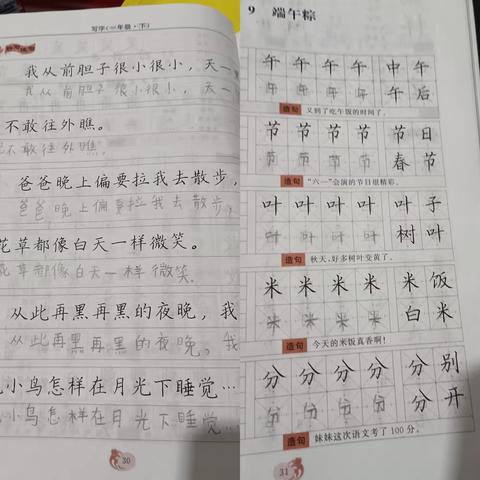 写字(一年级·下)
我从前胆子很小很小，天一
我从前胆子很小很小，天一
不敢往外瞧。
不敢往外瞧.
爸爸晚上偏要拉我去散步，
爸爸晚上偏要拉我去散步，
花草都像白天一样微笑。
花草都像白天一样微笑.
从此再黑再黑的夜晚，我
从此再黑再黑的夜晚，我
小鸟怎样在月光下睡觉…
小鸟怎样在月光下睡觉…
30
9 端午粽
午 午 午 午 中 午
午 午 午 午 午 后
造句 又到了吃午饭的时间了。
节 节 节 节 节 日
节 节 节 节 春 节
造句 “六一”会演的节目很精彩。
叶 叶 叶 叶 叶 子
叶 叶 叶 叶 树 叶
造句 秋天，好多树叶变黄了。
米 米 米 米 米 饭
米 米 米 米 白 米
造句 今天的米饭真香啊！
分 分 分 分 分 别
分 分 分 分 分 开
造句 妹妹这次语文考了100分。
31